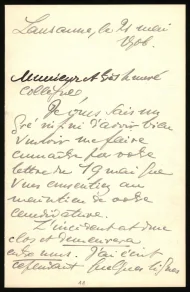 Lausanne, le 21 mai
1906.
Monsieur et très honoré
collègue
Je vous sais un
gré infini d'avoir bien
voulu me faire
connaître par votre
lettre du 19 mai que
vous consentiez au
maintien de votre
candidature.
L'incident est donc
clos et demeurera
entre nous. J'ai écrit
cependant quelques lignes